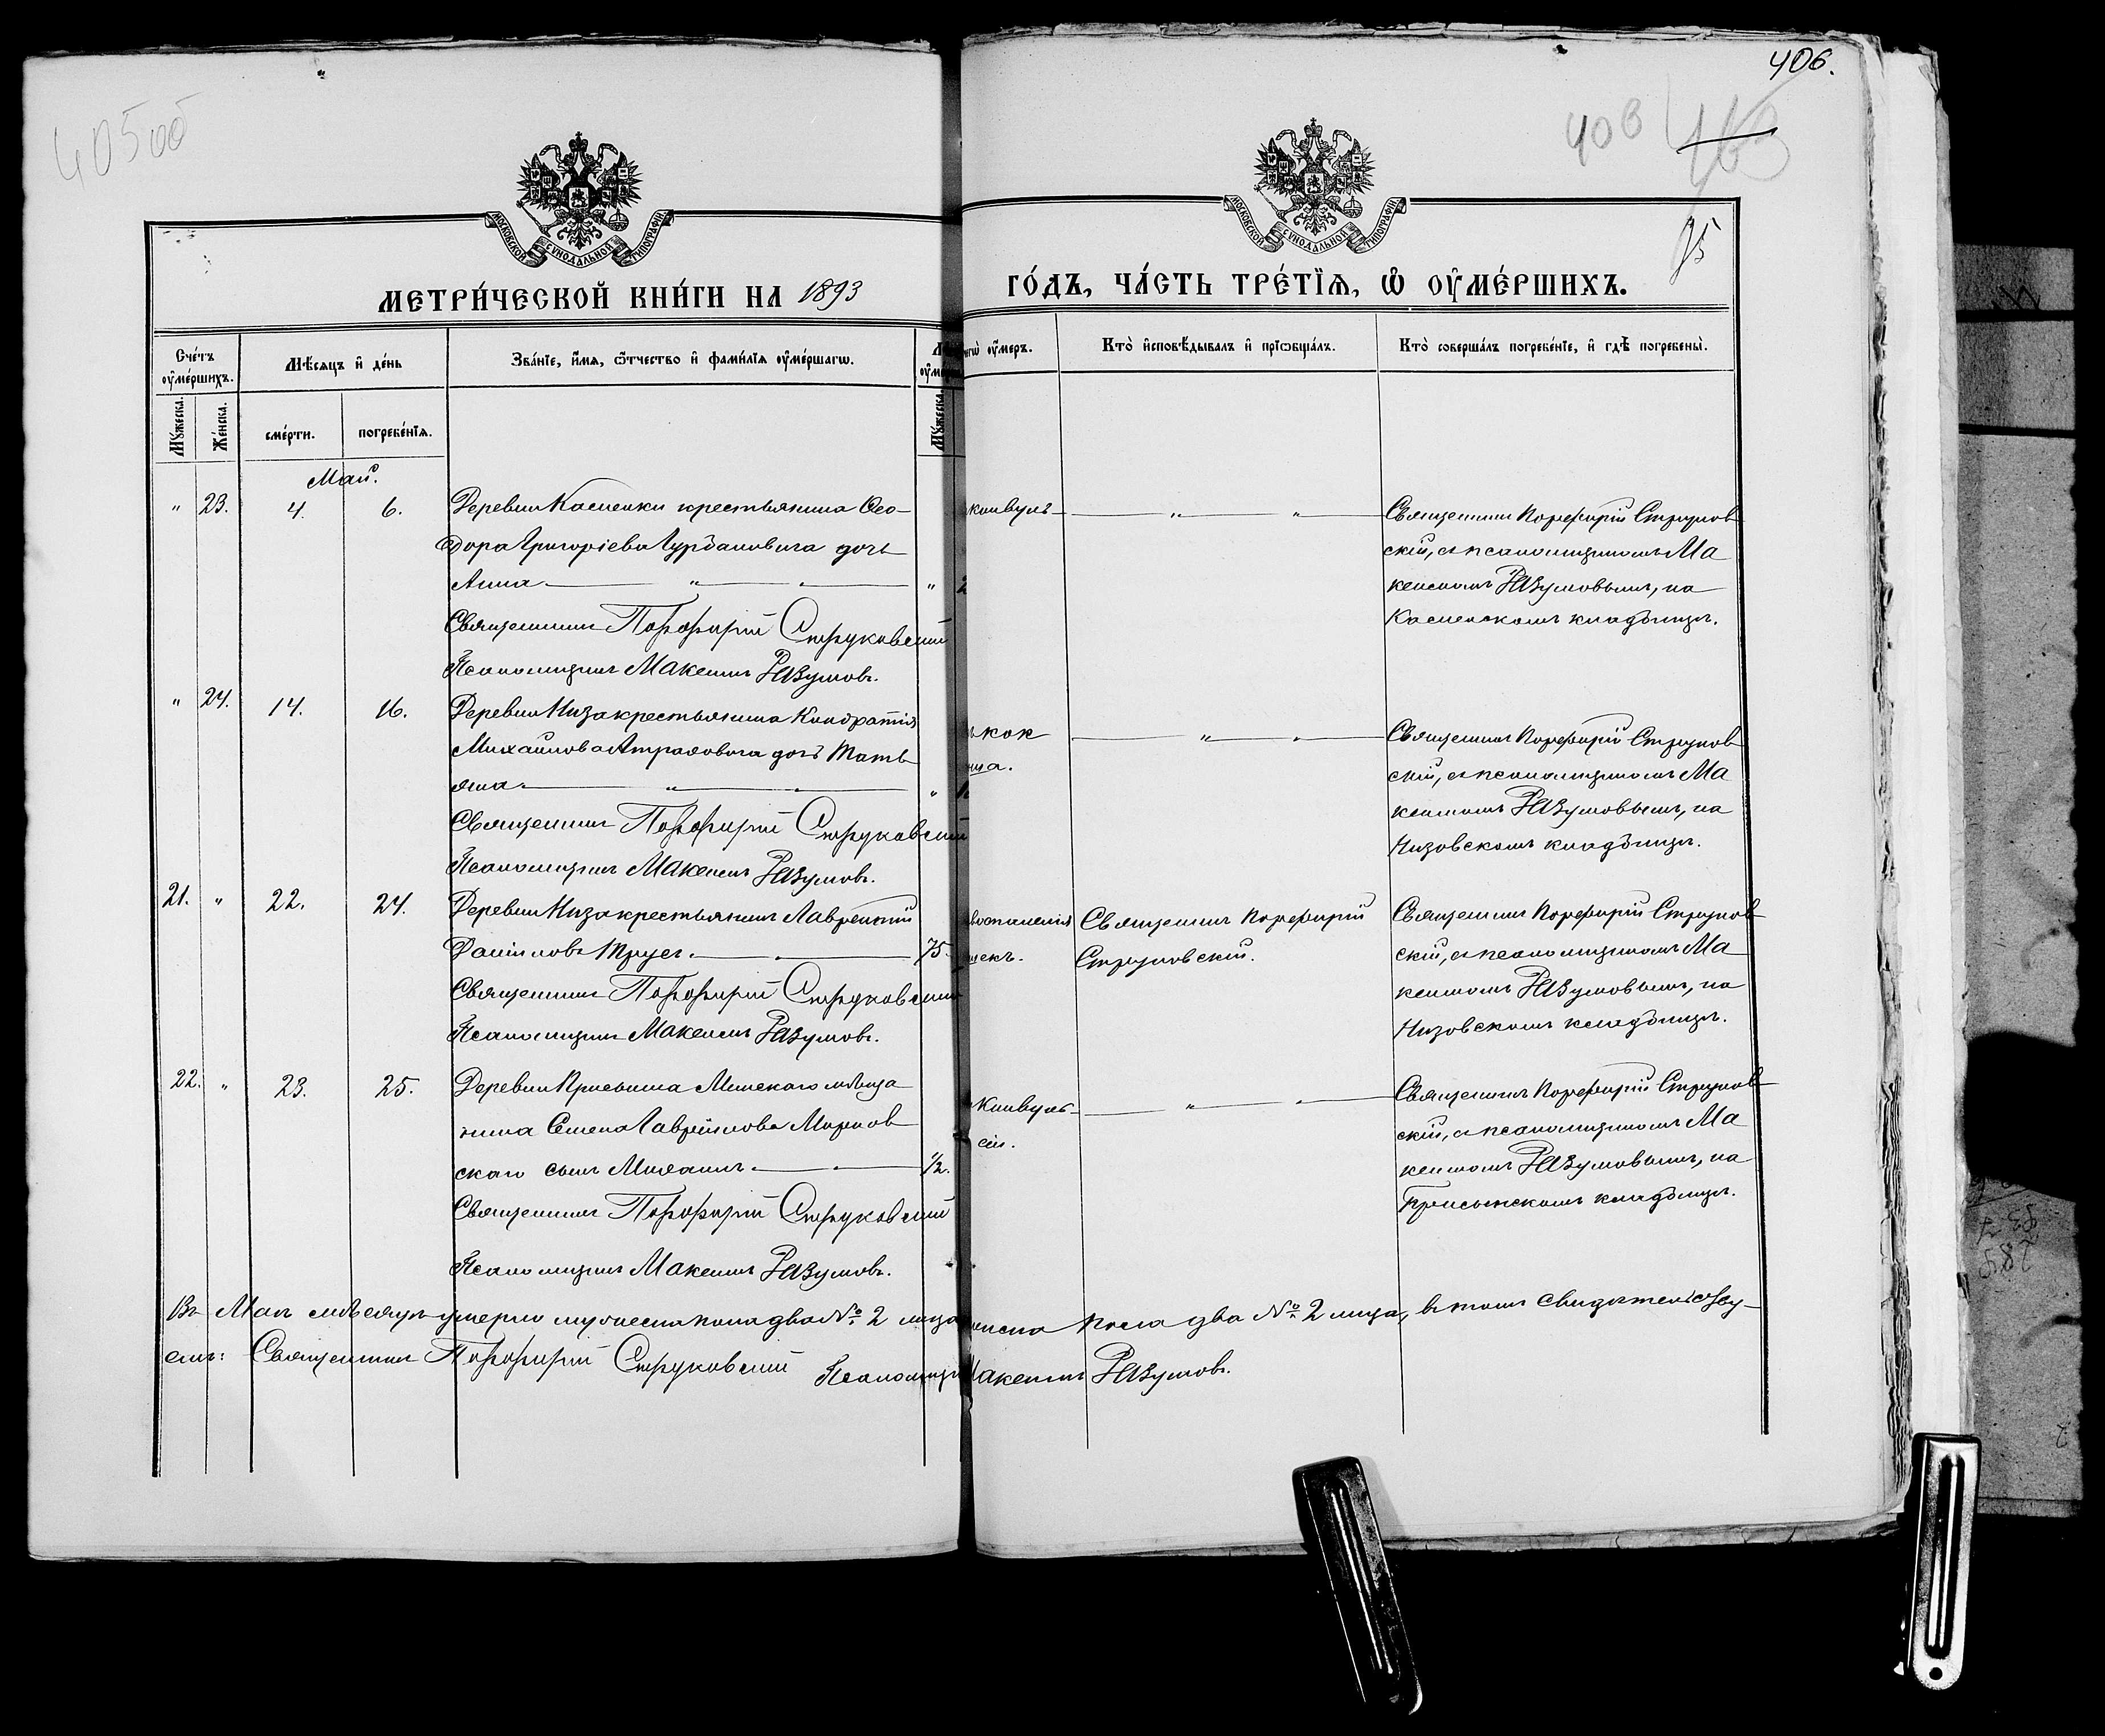 406.
405об
406
75
МОСКОВСКОЙ СѴНОДАЛЬНОЙ ТИПОГРАФІИ
МОСКОВСКОЙ СѴНОДАЛЬНОЙ ТИПОГРАФІИ
МЕТРИ́ЧЕСКОЙ КНИ́ГИ НА 1893 ГО́ДЪ, ЧА́СТЬ ТРЕ́ТЇѦ, Ѡ ОУМЕ́РШИХЪ.
Сче́тъ оумéршихъ.
Мѣ́сяцъ и де́нь
Зва́нїе, и́мя, ѻ́тчество и фами́лїя оуме́ршагѡ.
оу́меръ.
Кто̀ исповѣ́дывалъ и прїѡбща́лъ.
Кто̀ соверша́лъ погребе́нїе, и гдѣ̀ погребены̀.
Мꙋ́жеска.
Же́нска.
сме́рти.
погребе́нїя.
Мꙋ́жеска.
Май.
" 23. 4. 6. Деревни Касценки крестьянина Ѳео-
дора Григоріева Гурбановича дочь
Анна "
Священникъ Порфирій Струковскій
Псаломщикъ Максимъ Разумовъ.
коквулъ-
Священникъ Порфирій Струков
скій, съ псаломщикомъ Ма
ксимомъ Разумовымъ, на
кладбищѣ.
" 24. 14. 16. Деревни Низа крестьянина Кондратія
Михайлова дочь Тать
яна "
Священникъ Порфирій Струковскій
Псаломщикъ Максимъ Разумовъ.
кок
ша.
Священникъ Порфирій Струков
скій, съ псаломщикомъ Ма
ксимомъ Разумовымъ, на
Низовскомъ кладбищѣ.
21. " 22. 24. Деревни Низа крестьянинъ Лаврентій
Даніиловъ Трусъ. 75.
Священникъ Порфирій Струковскій
Псаломщикъ Максимъ Разумовъ.
воспаленія
Священникъ Порфирій
Струковскій.
Священникъ Порфирій Струков
скій, съ псаломщикомъ Ма
ксимомъ Разумовымъ, на
Низовскомъ кладбищѣ.
22. " 23. 25. Деревни Присынка Минскаго мѣща
нина Семена Гавріилова Марков
скаго сынъ Михаилъ. 1/2.
Священникъ Порфирій Струковскій
Псаломщикъ Максимъ Разумовъ.
конвуль-
сіи.
Священникъ Порфирій Струков
скій, съ псаломщикомъ Ма
ксимомъ Разумовымъ, на
Присынскомъ кладбищѣ.
Въ Маѣ мѣсяцѣ умерло мужеска пола два № 2 лица женска пола два № 2 лица, въ томъ свидѣтельству-
емъ: Священникъ Порфирій Струковскій Псаломщикъ Максимъ Разумовъ.